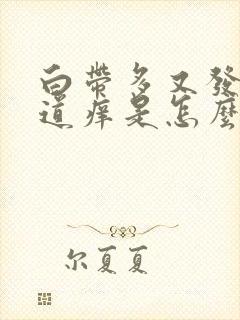 白帶多又發
道痒是怎麼
尔夏夏